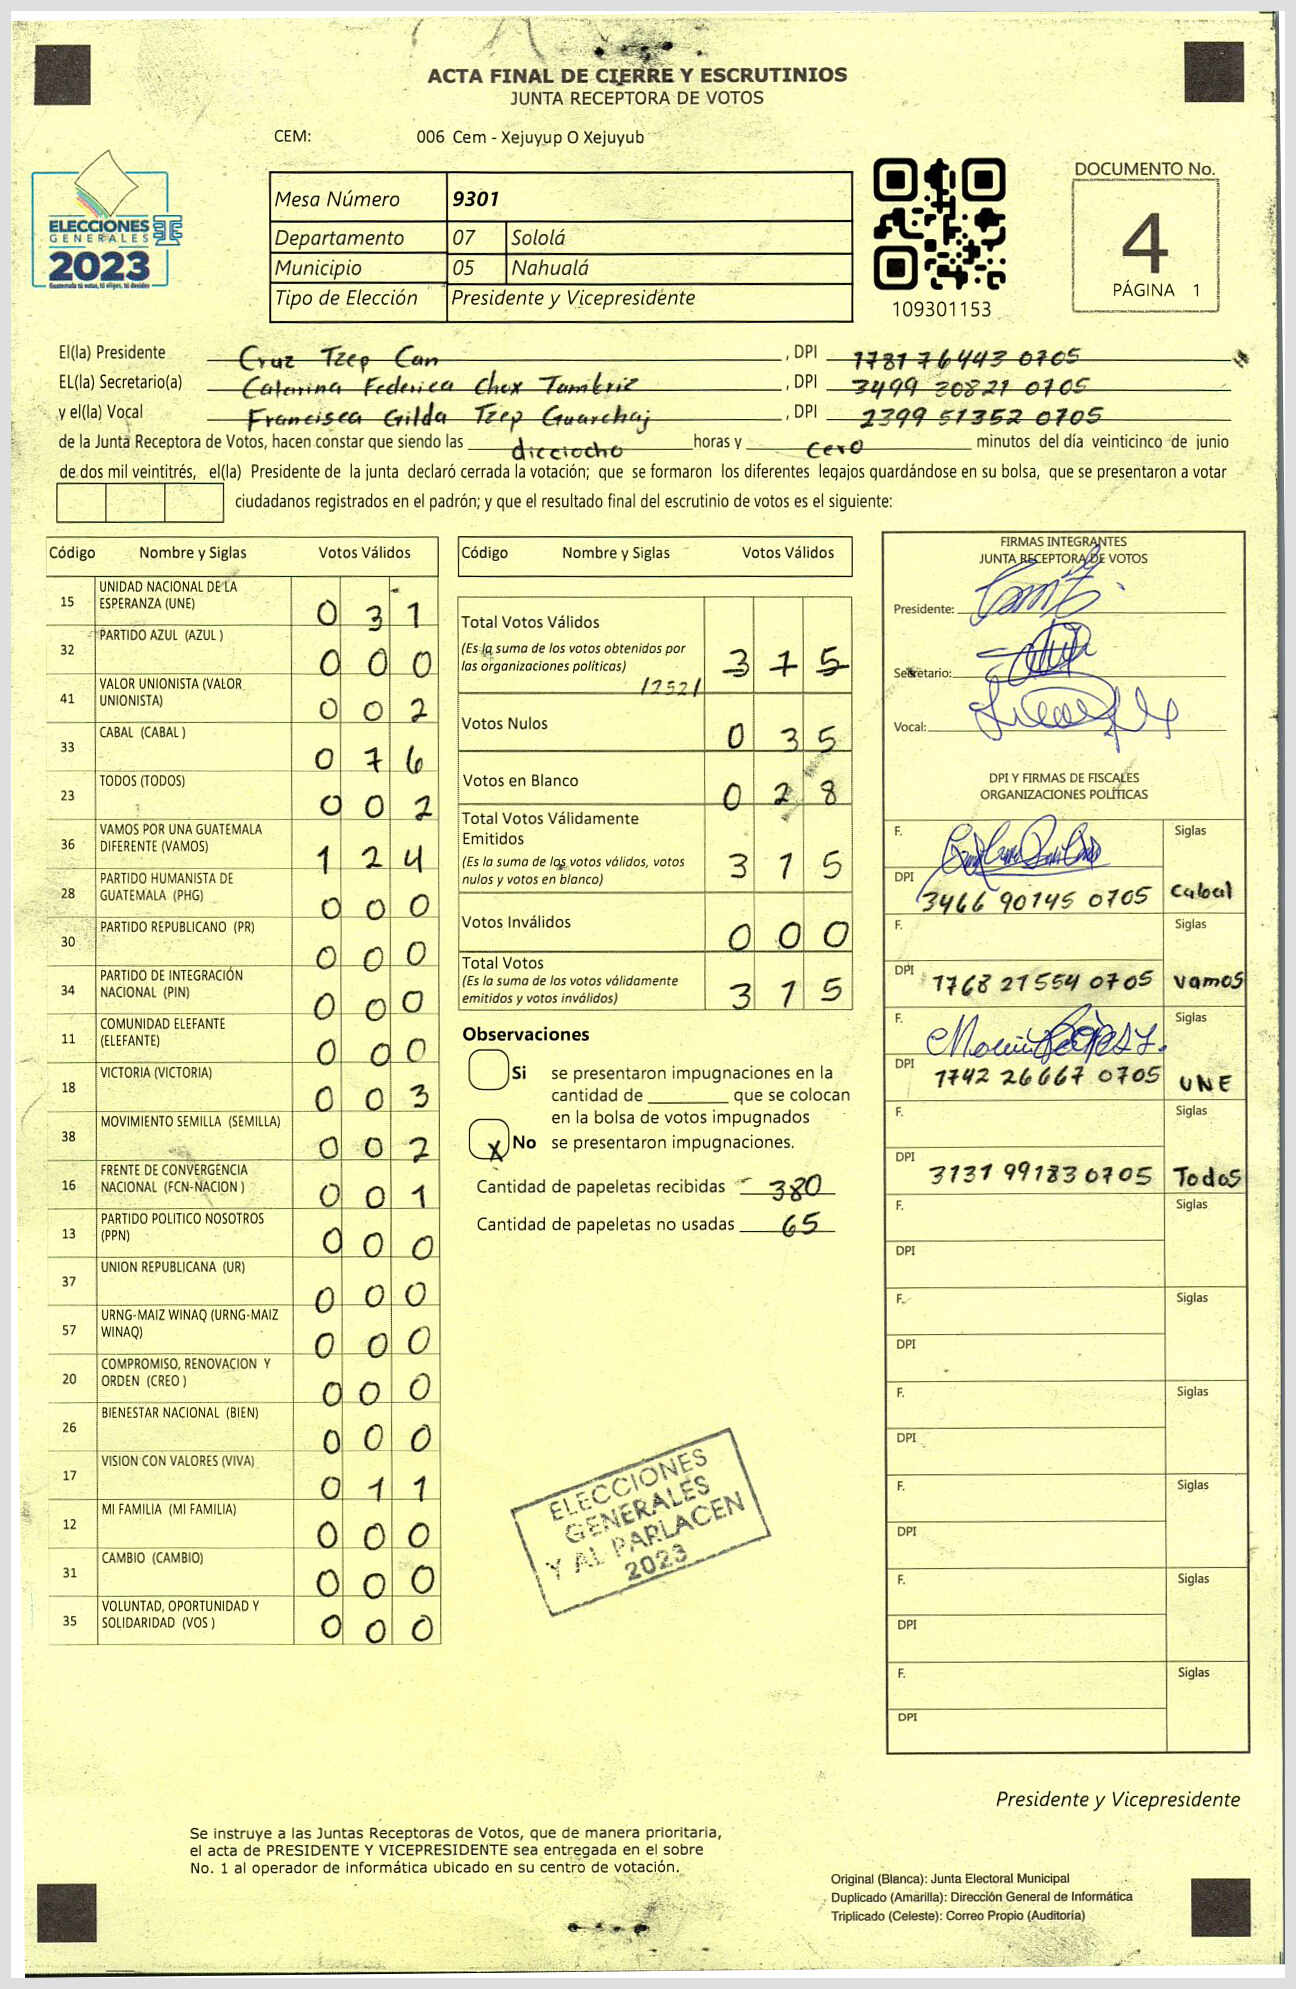 ACTA FINAL DE CIERRE Y ESCRUTINIOS
JUNTA RECEPTORA DE VOTOS
CEM: 006 Cem - Xejuyup O Xejuyub
ELECCIONES
GENERALES
2023
Guatemala tú votas, tú eliges, tú decides
Mesa Número 9301
Departamento 07 Sololá
Municipio 05 Nahualá
Tipo de Elección Presidente y Vicepresidente
109301153
DOCUMENTO No.
4
PÁGINA 1
El(la) Presidente Cruz Tzep Can, DPI 1781 76443 0705
EL(la) Secretario(a) Catarina Federica Chox Tambriz, DPI 3499 20821 0705
y el(la) Vocal Francisca Gilda Tzep Guarchaj, DPI 2399 51352 0705
de la Junta Receptora de Votos, hacen constar que siendo las dicciocho horas y cero minutos del día veinticinco de junio
de dos mil veintitrés, el(la) Presidente de la junta declaró cerrada la votación; que se formaron los diferentes legajos guardándose en su bolsa, que se presentaron a votar
ciudadanos registrados en el padrón; y que el resultado final del escrutinio de votos es el siguiente:
Código Nombre y Siglas Votos Válidos
15 UNIDAD NACIONAL DE LA ESPERANZA (UNE) 0 3 1
32 PARTIDO AZUL (AZUL ) 0 0 0
41 VALOR UNIONISTA (VALOR UNIONISTA) 0 0 2
33 CABAL (CABAL ) 0 7 6
23 TODOS (TODOS) 0 0 2
36 VAMOS POR UNA GUATEMALA DIFERENTE (VAMOS) 1 2 4
28 PARTIDO HUMANISTA DE GUATEMALA (PHG) 0 0 0
30 PARTIDO REPUBLICANO (PR) 0 0 0
34 PARTIDO DE INTEGRACIÓN NACIONAL (PIN) 0 0 0
11 COMUNIDAD ELEFANTE (ELEFANTE) 0 0 0
18 VICTORIA (VICTORIA) 0 0 3
38 MOVIMIENTO SEMILLA (SEMILLA) 0 0 2
16 FRENTE DE CONVERGENCIA NACIONAL (FCN-NACION ) 0 0 1
13 PARTIDO POLITICO NOSOTROS (PPN) 0 0 0
37 UNION REPUBLICANA (UR) 0 0 0
57 URNG-MAIZ WINAQ (URNG-MAIZ WINAQ) 0 0 0
20 COMPROMISO, RENOVACION Y ORDEN (CREO ) 0 0 0
26 BIENESTAR NACIONAL (BIEN) 0 0 0
17 VISION CON VALORES (VIVA) 0 1 1
12 MI FAMILIA (MI FAMILIA) 0 0 0
31 CAMBIO (CAMBIO) 0 0 0
35 VOLUNTAD, OPORTUNIDAD Y SOLIDARIDAD (VOS ) 0 0 0
Código Nombre y Siglas Votos Válidos
Total Votos Válidos
(Es la suma de los votos obtenidos por
las organizaciones políticas) 3 1 5
/252/
Votos Nulos 0 3 5
Votos en Blanco 0 2 8
Total Votos Válidamente
Emitidos
(Es la suma de los votos válidos, votos
nulos y votos en blanco) 3 1 5
Votos Inválidos 0 0 0
Total Votos
(Es la suma de los votos válidamente
emitidos y votos inválidos) 3 1 5
Observaciones
Si se presentaron impugnaciones en la
cantidad de ________ que se colocan
en la bolsa de votos impugnados
X No se presentaron impugnaciones.
Cantidad de papeletas recibidas 380
Cantidad de papeletas no usadas 65
ELECCIONES
GENERALES
Y AL PARLACEN
2023
FIRMAS INTEGRANTES
JUNTA RECEPTORA DE VOTOS
Presidente:
Secretario:
Vocal:
DPI Y FIRMAS DE FISCALES
ORGANIZACIONES POLÍTICAS
F. Siglas
DPI 3466 90145 0705 Cabal
F. Siglas
DPI 1768 21554 0705 Vamos
F. Siglas
DPI 1742 26667 0705 UNE
F. Siglas
DPI 3131 99183 0705 Todos
F. Siglas
DPI
F. Siglas
DPI
F. Siglas
DPI
F. Siglas
DPI
F. Siglas
DPI
F. Siglas
DPI
Presidente y Vicepresidente
Se instruye a las Juntas Receptoras de Votos, que de manera prioritaria,
el acta de PRESIDENTE Y VICEPRESIDENTE sea entregada en el sobre
No. 1 al operador de informática ubicado en su centro de votación.
Original (Blanca): Junta Electoral Municipal
Duplicado (Amarilla): Dirección General de Informática
Triplicado (Celeste): Correo Propio (Auditoría)